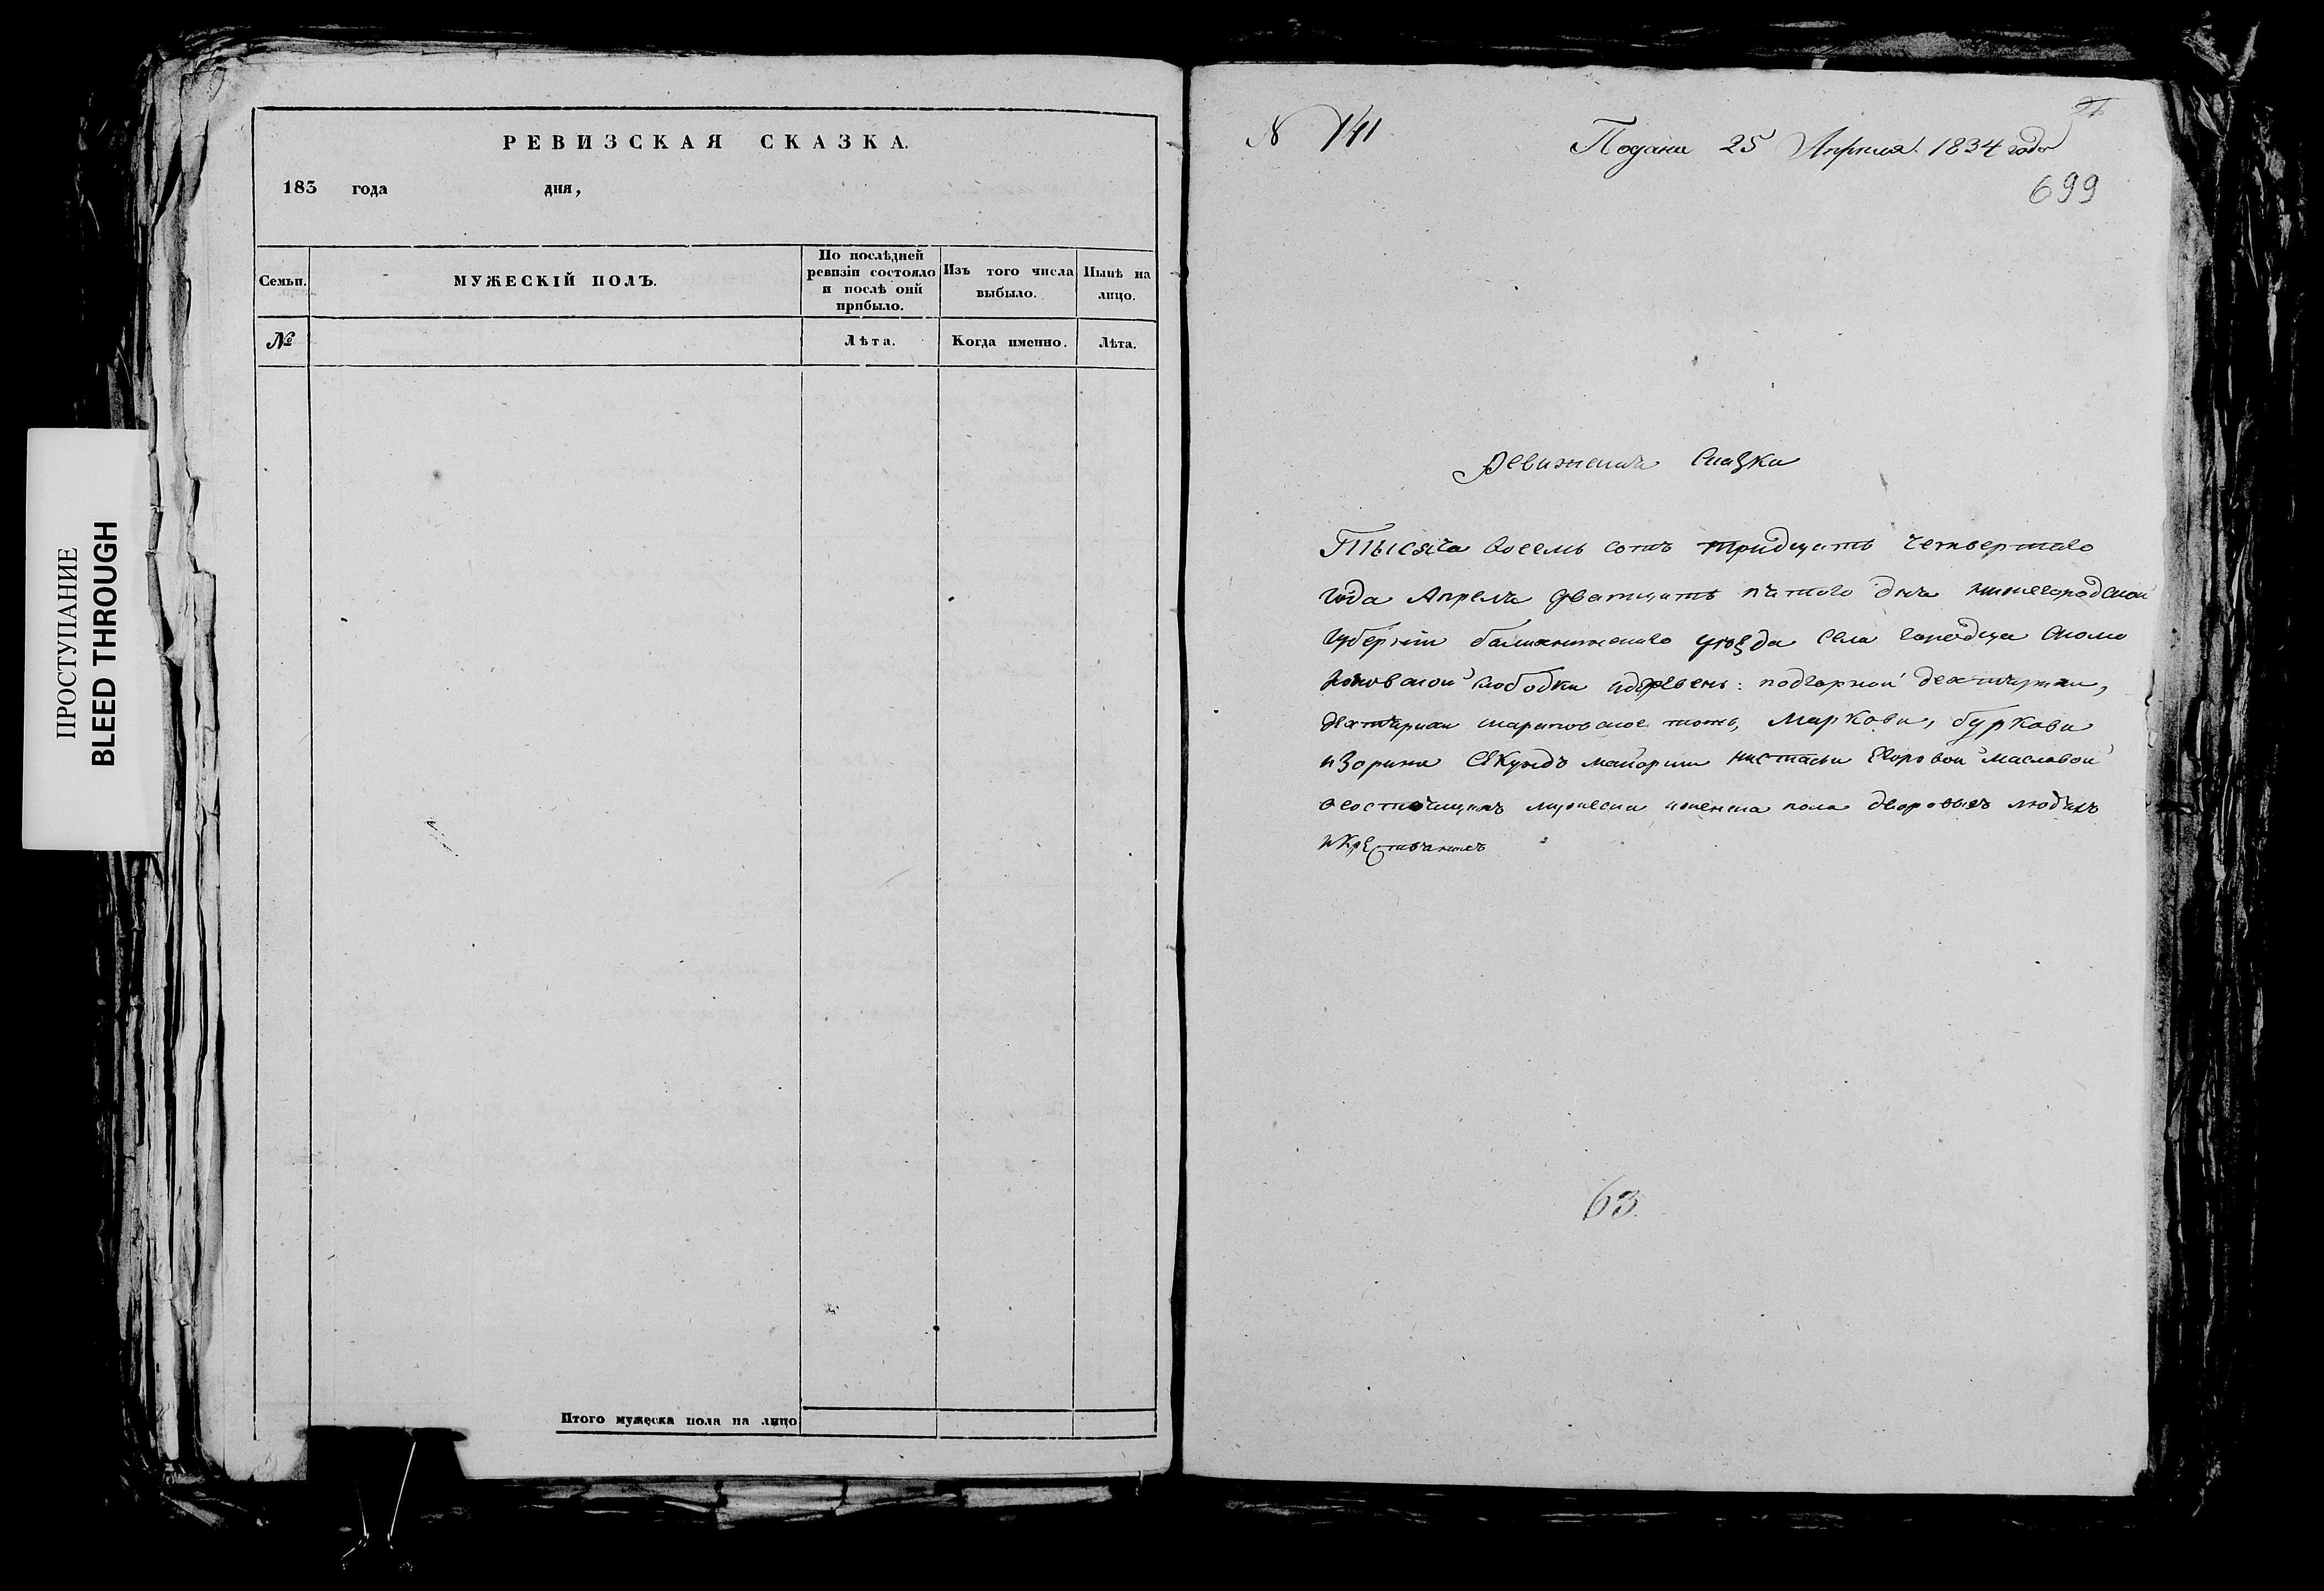 ПРОСТУПАНИЕ
BLEED THROUGH
РЕВИЗСКАЯ СКАЗКА.
183 года дня,
Семьи.
МУЖЕСКІЙ ПОЛЪ.
По послѣдней
ревизіи состояло
и послѣ оной
прибыло.
Изъ того числа
выбыло.
Нынѣ на
лицо.
№
Лѣта.
Когда именно.
Лѣта.
Итого мужеска пола на лицо
N 141
Подана 25 Апреля 1834 года
699
Ревижская Сказка
Тысяча восемь сотъ тридцать четвертаго
года Апреля дватцать пятого дня нижегородской
губерніи балахнинскаго уѣзда села городца
слободки деревень: подгорной дехтярихи,
дехтярихи тожъ, Маркова, буркова
и Зорина Секундъ маіорши настасьи Егоровой масловой
о состоящихъ мужеска и женска пола дворовыхъ людяхъ
и крестьянехъ
63.